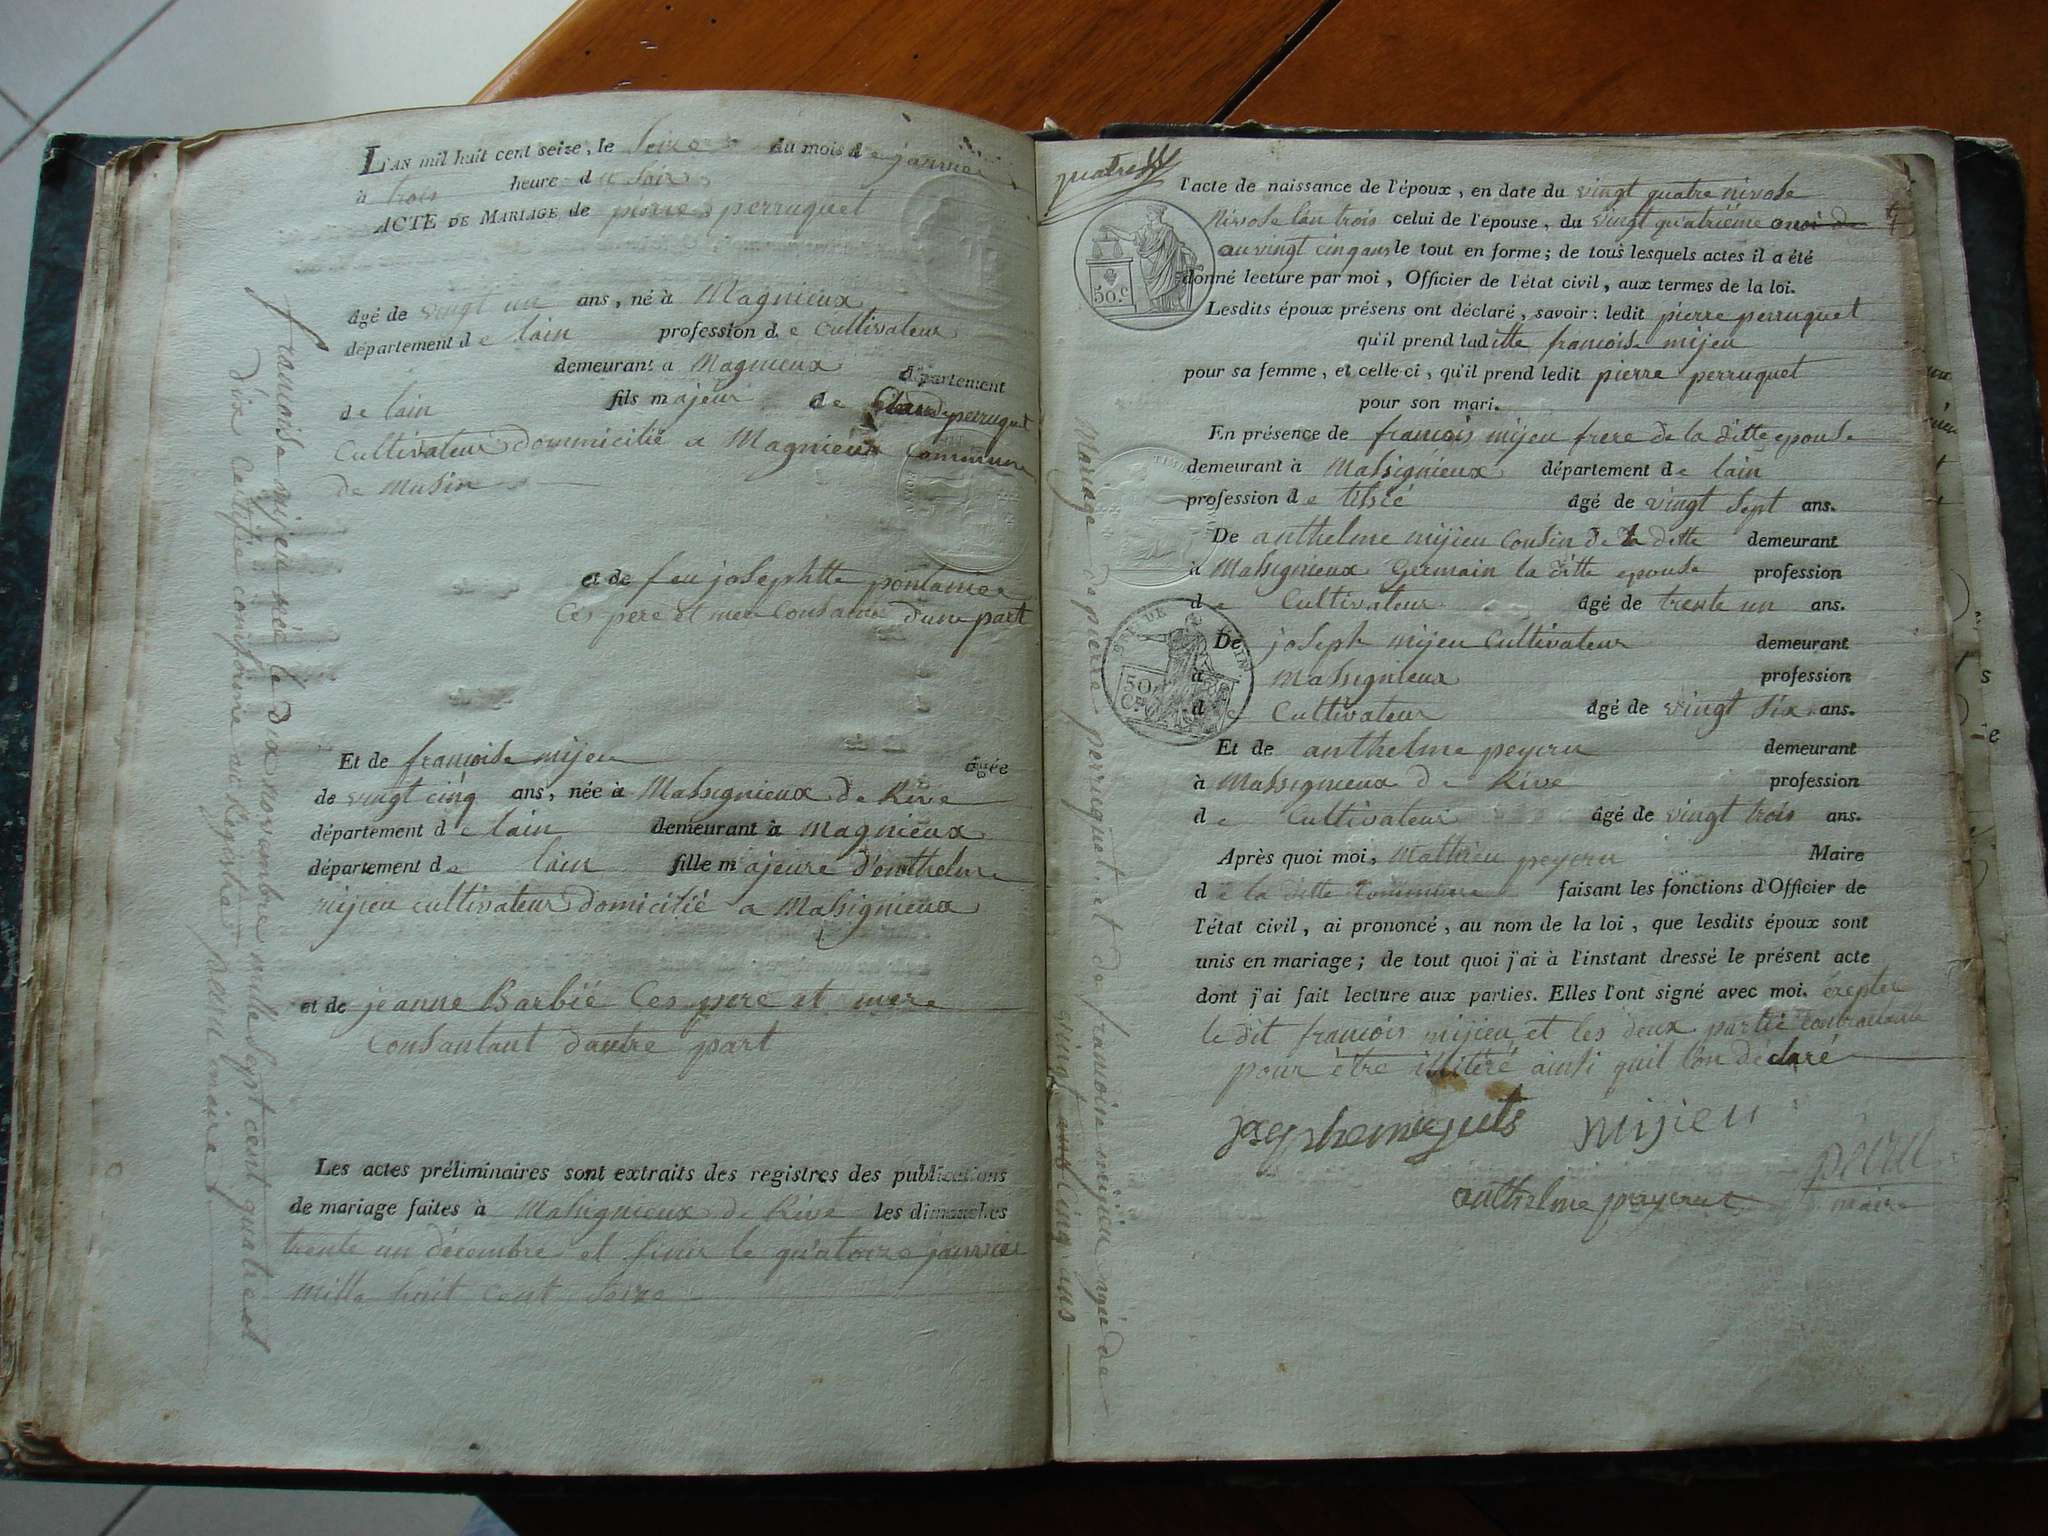 L'AN mil huit cent seize, le Seize du mois de janvier
à trois heure du soir
ACTE DE MARIAGE de pierre perruquet
âgé de vingt un ans, né à Magnieux
département de lain profession de Cultivateur
demeurant a Magnieux département
de lain fils majeur de Claude perruquet
Cultivateur dommicilié a Magnieux Commune
de Musin
et de feu josephtte pontanier
Ces pere et mere Consants d'une part
Et de francoise mijeu âgée
de vingt cinq ans, née à Massignieux de Rive
département de lain demeurant à Magnieux
département de lain fille majeure D'enthelme
mijieu cultivateur Domicilié a Massignieux
et de jeanne Barbié Ces pere et mere
Consantant dautre part
Les actes préliminaires sont extraits des registres des publications
de mariage faites à Massignieux de Rive les dimanches
trente un décembre et finir le quatorze janvier
mille huit cent Seize
francoise mijeu née le dix novembre mille sept cent quatre et
dix Certifié conforme au Registre maire
quatre
l'acte de naissance de l'époux, en date du vingt quatre nivose
Nivose lan trois celui de l'épouse, du vingt quatrieme
au vingt cinq ans le tout en forme; de tous lesquels actes il a été
donné lecture par moi, Officier de l'état civil, aux termes de la loi.
50.c
Lesdits époux présens ont déclaré, savoir: ledit pierre perruquet
qu'il prend laditte francoise mijeu
pour sa femme, et celle-ci, qu'il prend ledit pierre perruquet
pour son mari.
En présence de francois mijeu frere de la ditte epouse
demeurant à Massignieux département de lain
profession de tissié âgé de vingt sept ans.
De anthelme mijieu Cousin de la ditte demeurant
à Massignieux Germain la ditte epouse profession
de Cultivateur âgé de trente un ans.
De joseph mijeu Cultivateur demeurant
à Massignieux profession
de Cultivateur âgé de vingt six ans.
50 C.
Et de anthelme peycru demeurant
à Massignieux de Rive profession
de Cultivateur âgé de vingt trois ans.
Après quoi moi, Mathieu peycru Maire
de la ditte Commune faisant les fonctions d'Officier de
l'état civil, ai prononcé, au nom de la loi, que lesdits époux sont
unis en mariage; de tout quoi j'ai à l'instant dressé le présent acte
dont j'ai fait lecture aux parties. Elles l'ont signé avec moi. éxepter
le dit francois mijieu et les deux partie contractante
pour être illitéré ainsi quil lon déclaré
mijieu
anthelme maire
Mariage de pierre perruquet, et de francoise mijieu agée de
vint cinq ans